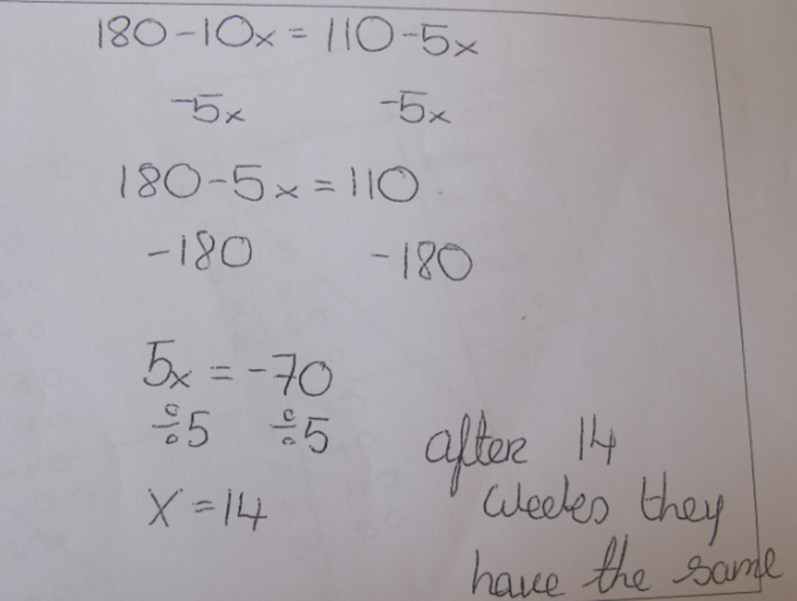 180-10x = 110-5x
-5x -5x
180-5x = 110
-180 -180
5x = -70
÷5 ÷5
x = 14
after 14
weeks they
have the same